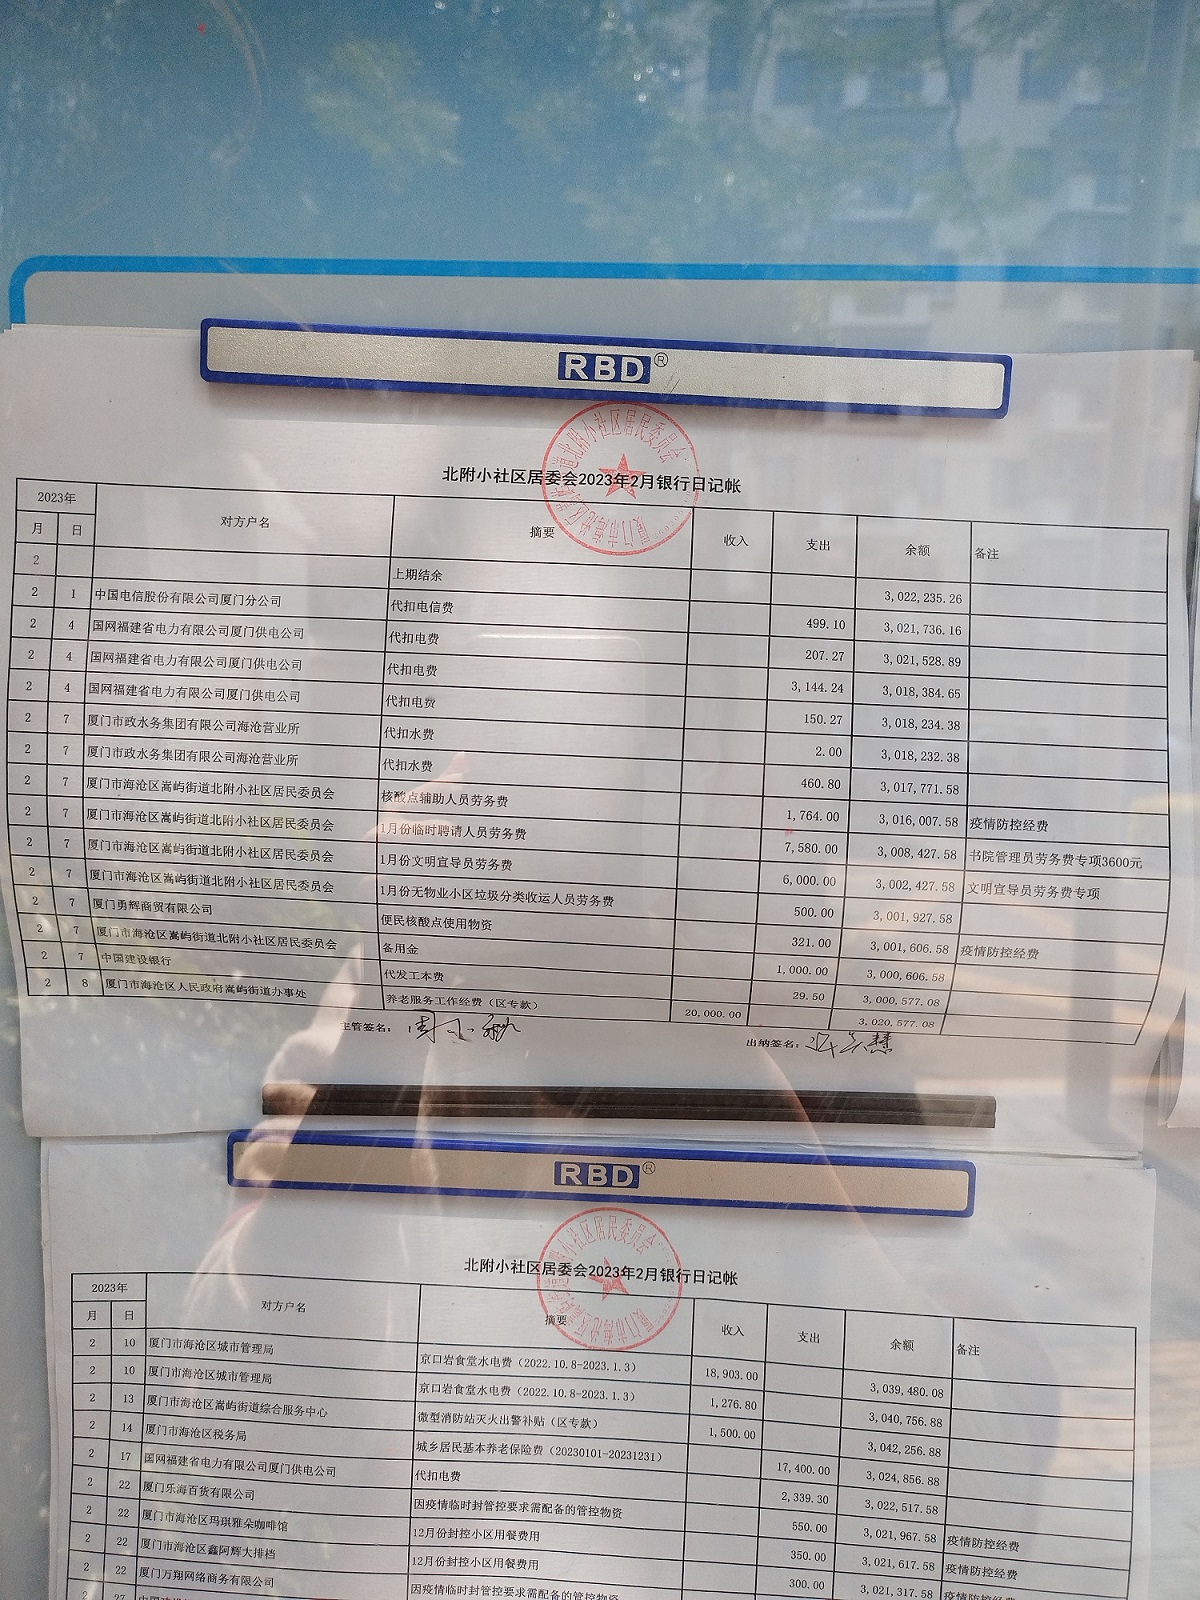 RBD®
北附小社区居委会2023年2月银行日记帐
2023年 对方户名 摘要 收入 支出 余额 备注
月 日
2 上期结余 3,022,235.26
2 1 中国电信股份有限公司厦门分公司 代扣电信费 499.10 3,021,736.16
2 4 国网福建省电力有限公司厦门供电公司 代扣电费 207.27 3,021,528.89
2 4 国网福建省电力有限公司厦门供电公司 代扣电费 3,144.24 3,018,384.65
2 4 国网福建省电力有限公司厦门供电公司 代扣电费 150.27 3,018,234.38
2 7 厦门市政水务集团有限公司海沧营业所 代扣水费 2.00 3,018,232.38
2 7 厦门市政水务集团有限公司海沧营业所 代扣水费 460.80 3,017,771.58
2 7 厦门市海沧区嵩屿街道北附小社区居民委员会 核酸点辅助人员劳务费 1,764.00 3,016,007.58 疫情防控经费
2 7 厦门市海沧区嵩屿街道北附小社区居民委员会 1月份临时聘请人员劳务费 7,580.00 3,008,427.58 书院管理员劳务费专项3600元
2 7 厦门市海沧区嵩屿街道北附小社区居民委员会 1月份文明宣导员劳务费 6,000.00 3,002,427.58 文明宣导员劳务费专项
2 7 厦门市海沧区嵩屿街道北附小社区居民委员会 1月份无物业小区垃圾分类收运人员劳务费 500.00 3,001,927.58
2 7 厦门勇辉商贸有限公司 便民核酸点使用物资 321.00 3,001,606.58 疫情防控经费
2 7 厦门市海沧区嵩屿街道北附小社区居民委员会 备用金 1,000.00 3,000,606.58
2 7 中国建设银行 代发工本费 29.50 3,000,577.08
2 8 厦门市海沧区人民政府嵩屿街道办事处 养老服务工作经费（区专款） 20,000.00 3,020,577.08
主管签名： 出纳签名：
RBD®
北附小社区居委会2023年2月银行日记帐
2023年 对方户名 摘要 收入 支出 余额 备注
月 日
2 10 厦门市海沧区城市管理局 京口岩食堂水电费（2022.10.8-2023.1.3） 18,903.00 3,039,480.08
2 10 厦门市海沧区城市管理局 京口岩食堂水电费（2022.10.8-2023.1.3） 1,276.80 3,040,756.88
2 13 厦门市海沧区嵩屿街道综合服务中心 微型消防站灭火出警补贴（区专款） 1,500.00 3,042,256.88
2 14 厦门市海沧区税务局 城乡居民基本养老保险费（20230101-20231231） 17,400.00 3,024,856.88
2 17 国网福建省电力有限公司厦门供电公司 代扣电费 2,339.30 3,022,517.58
2 22 厦门乐海百货有限公司 因疫情临时封管控要求需配备的管控物资 550.00 3,021,967.58 疫情防控经费
2 22 厦门市海沧区玛琪雅朵咖啡馆 12月份封控小区用餐费用 350.00 3,021,617.58 疫情防控经费
2 22 厦门市海沧区鑫阿辉大排档 12月份封控小区用餐费用 300.00 3,021,317.58 疫情防控经费
2 22 厦门万翔网络商务有限公司 因疫情临时封管控要求需配备的管控物资